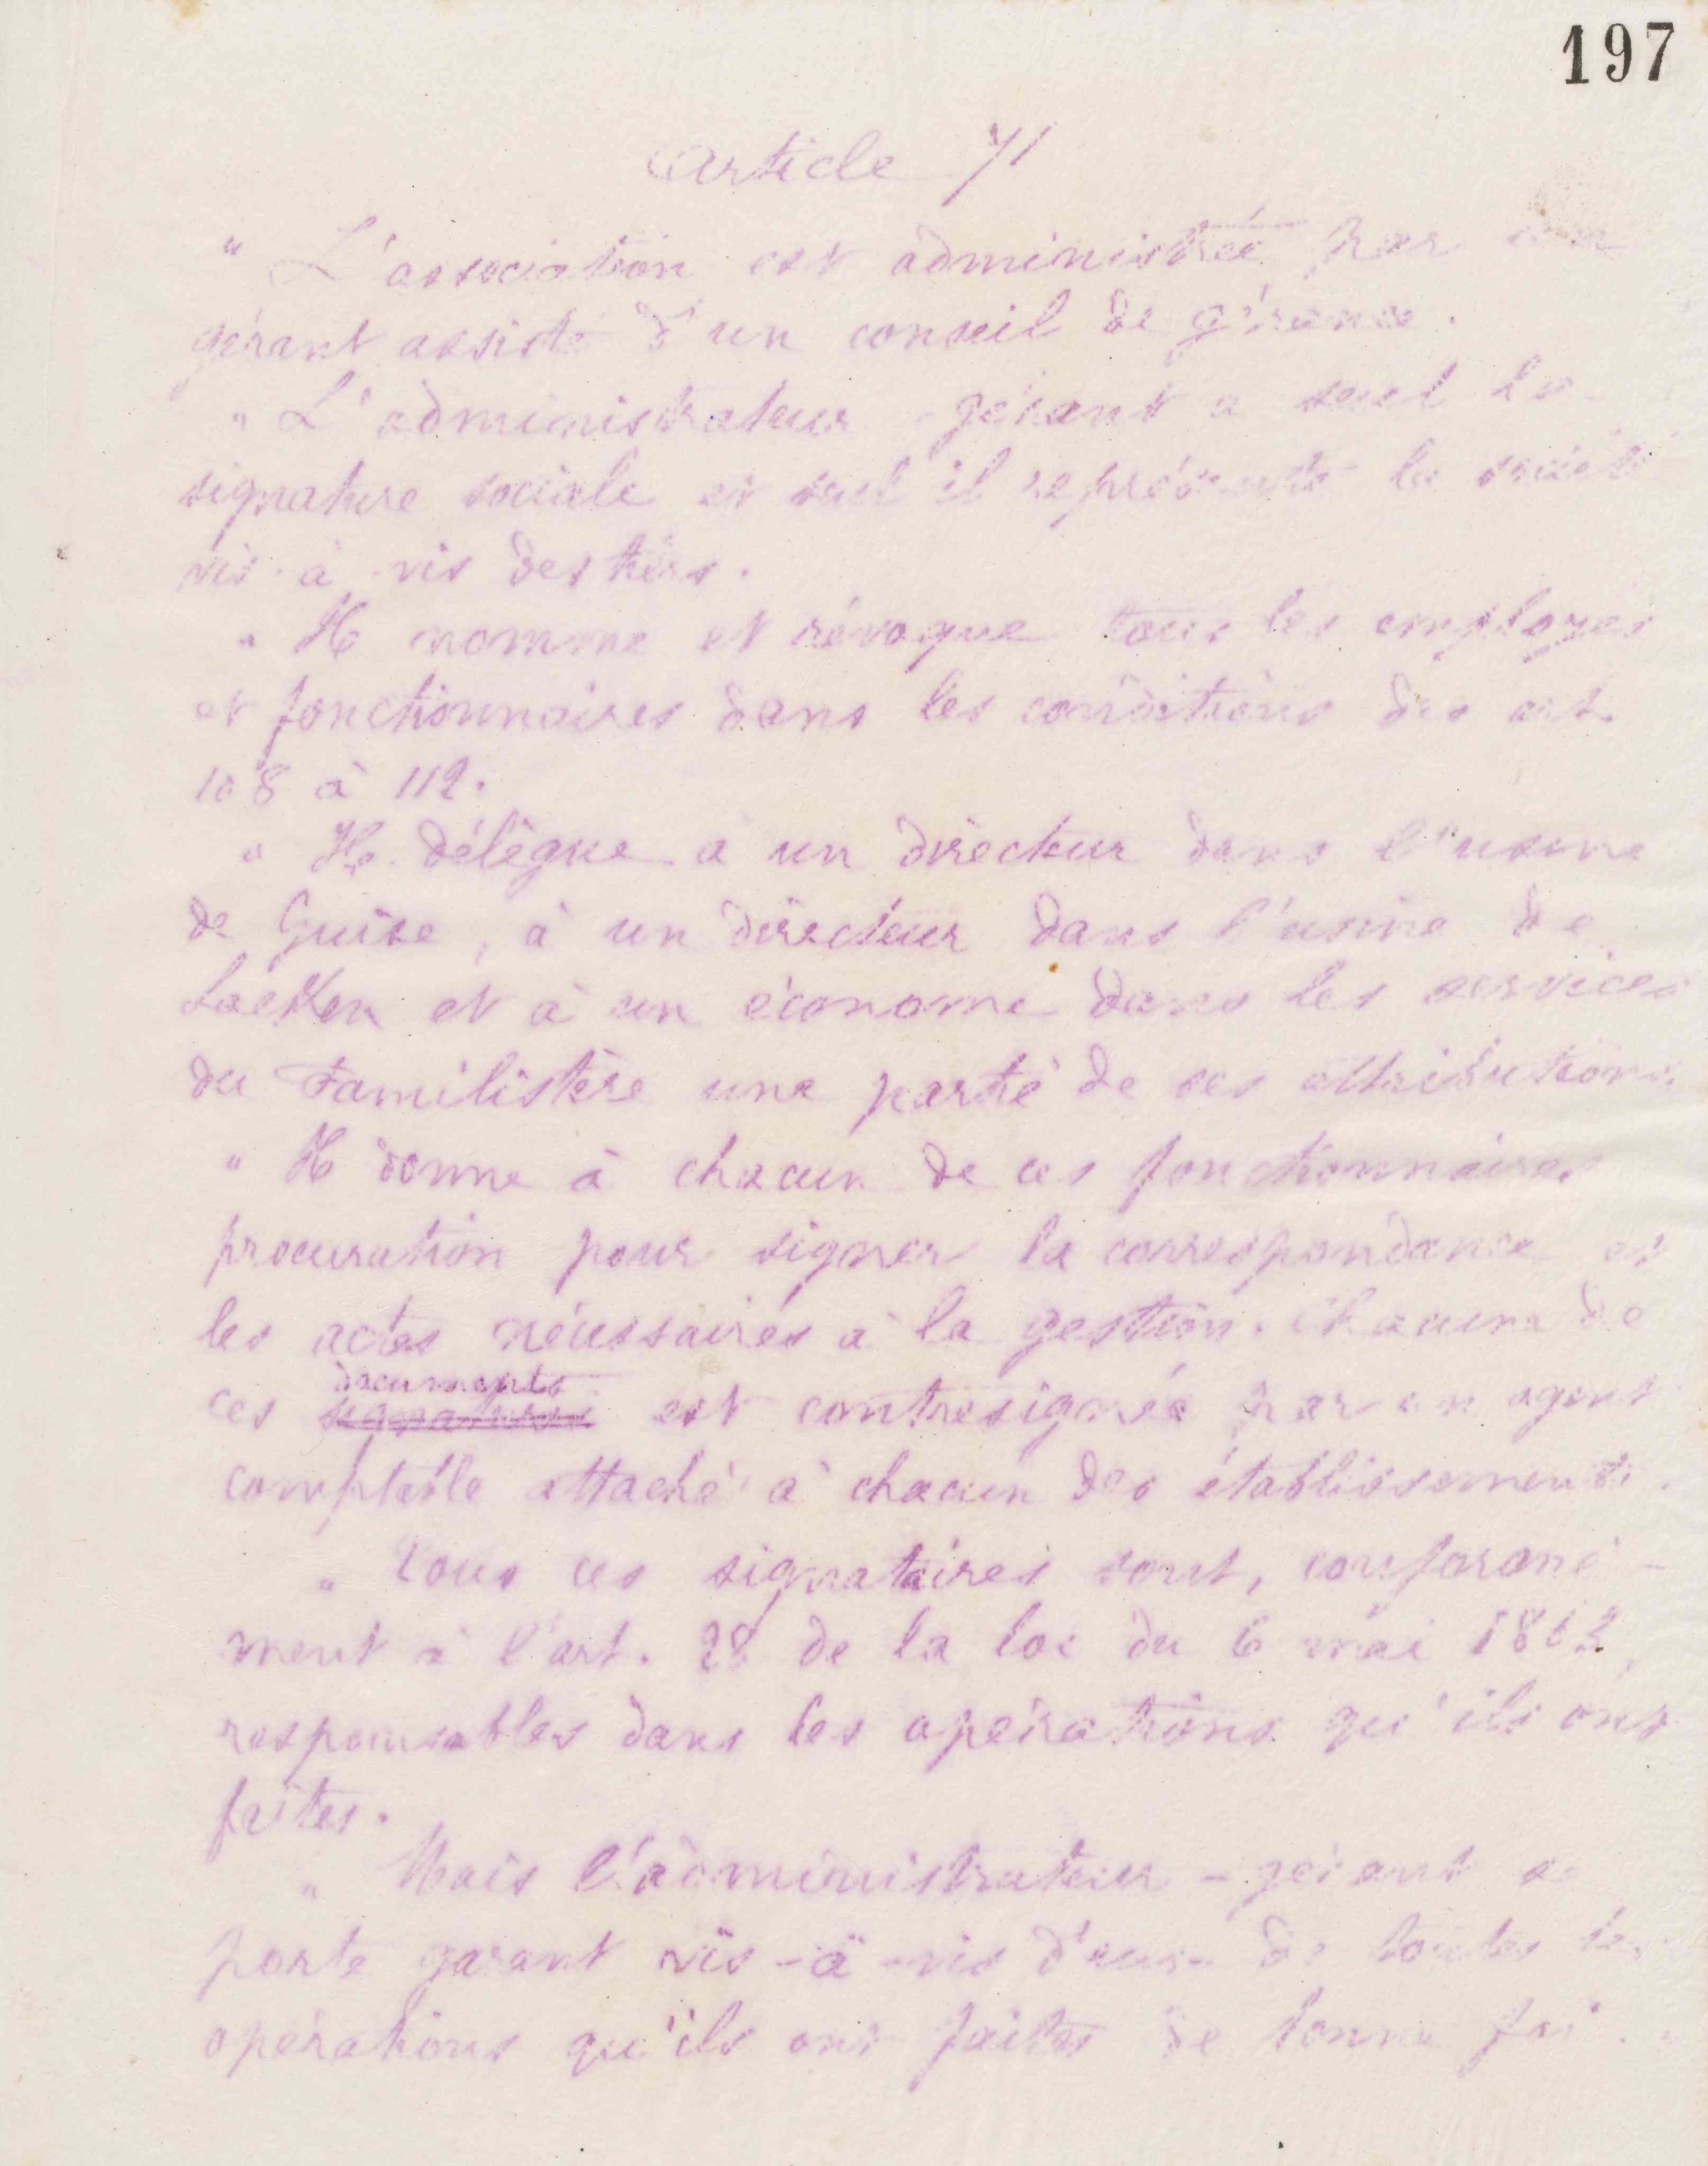 197
Article 71
" L'association est administrée par un
gérant assisté d'un conseil de gérance.
" L'administrateur-gérant a seul la
signature sociale et seul il représente la société
vis-à-vis des tiers.
" Il nomme et révoque tous les employés
et fonctionnaires dans les conditions des art.
108 à 112.
" Il délègue à un directeur dans l'usine
de Guise, à un directeur dans l'usine de
Laeken et à un économe dans les services
du Familistère une partie de ses attributions.
" Il donne à chacun de ces fonctionnaires
procuration pour signer la correspondance et
les actes nécessaires à la gestion. Chacune de
documents
ces signatures est contresignée par un agent
comptable attaché à chacun des établissements.
" Tous ces signataires sont, conformé-
ment à l'art. 28 de la loi du 6 mai 1863,
responsables dans les opérations qu'ils ont
faites.
" Mais l'administrateur-gérant se
porte garant vis-à-vis d'eux de toutes les
opérations qu'ils ont faites de bonne foi. "